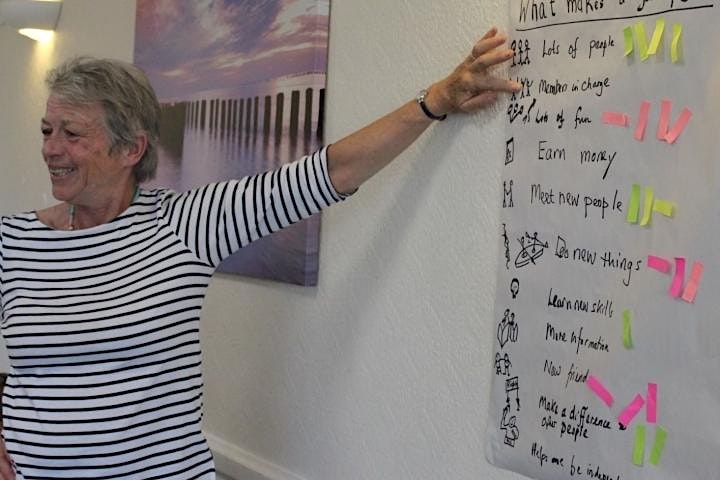 What makes a
Lots of people
Members in charge
Lots of fun
Earn money
Meet new people
Do new things
Learn new skills
More information
New friend
Make a difference
other people
Helps me be